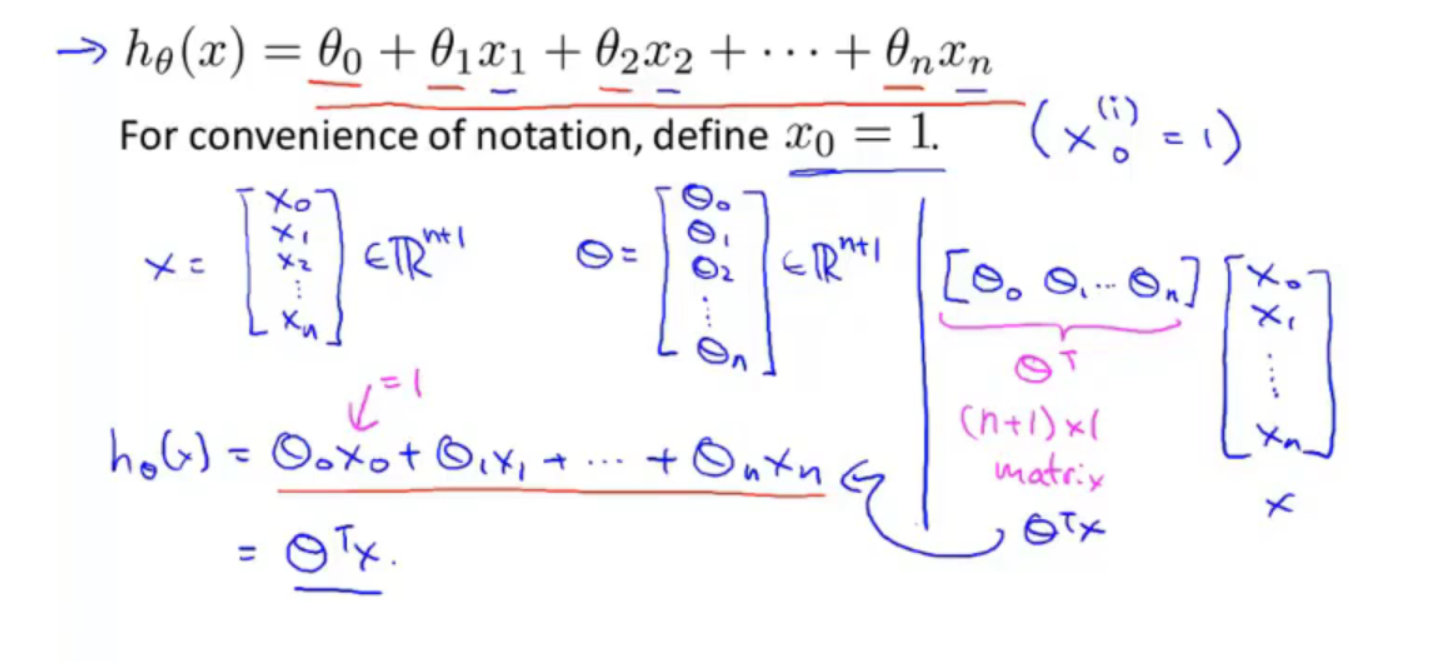 → hθ(x) = θ0 + θ1x1 + θ2x2 + ··· + θnxn
For convenience of notation, define x0 = 1. (x0^(i) = 1)
x = [x0 x1 x2 ⋮ xn] ∈ ℝ^(n+1) θ = [θ0 θ1 θ2 ⋮ θn] ∈ ℝ^(n+1)
[θ0 θ1 ... θn] [x0 x1 ⋮ xn]
θ^T
(n+1)×1
matrix
x
= 1
hθ(x) = θ0x0 + θ1x1 + ... + θnxn
= θ^T x.
θ^T x